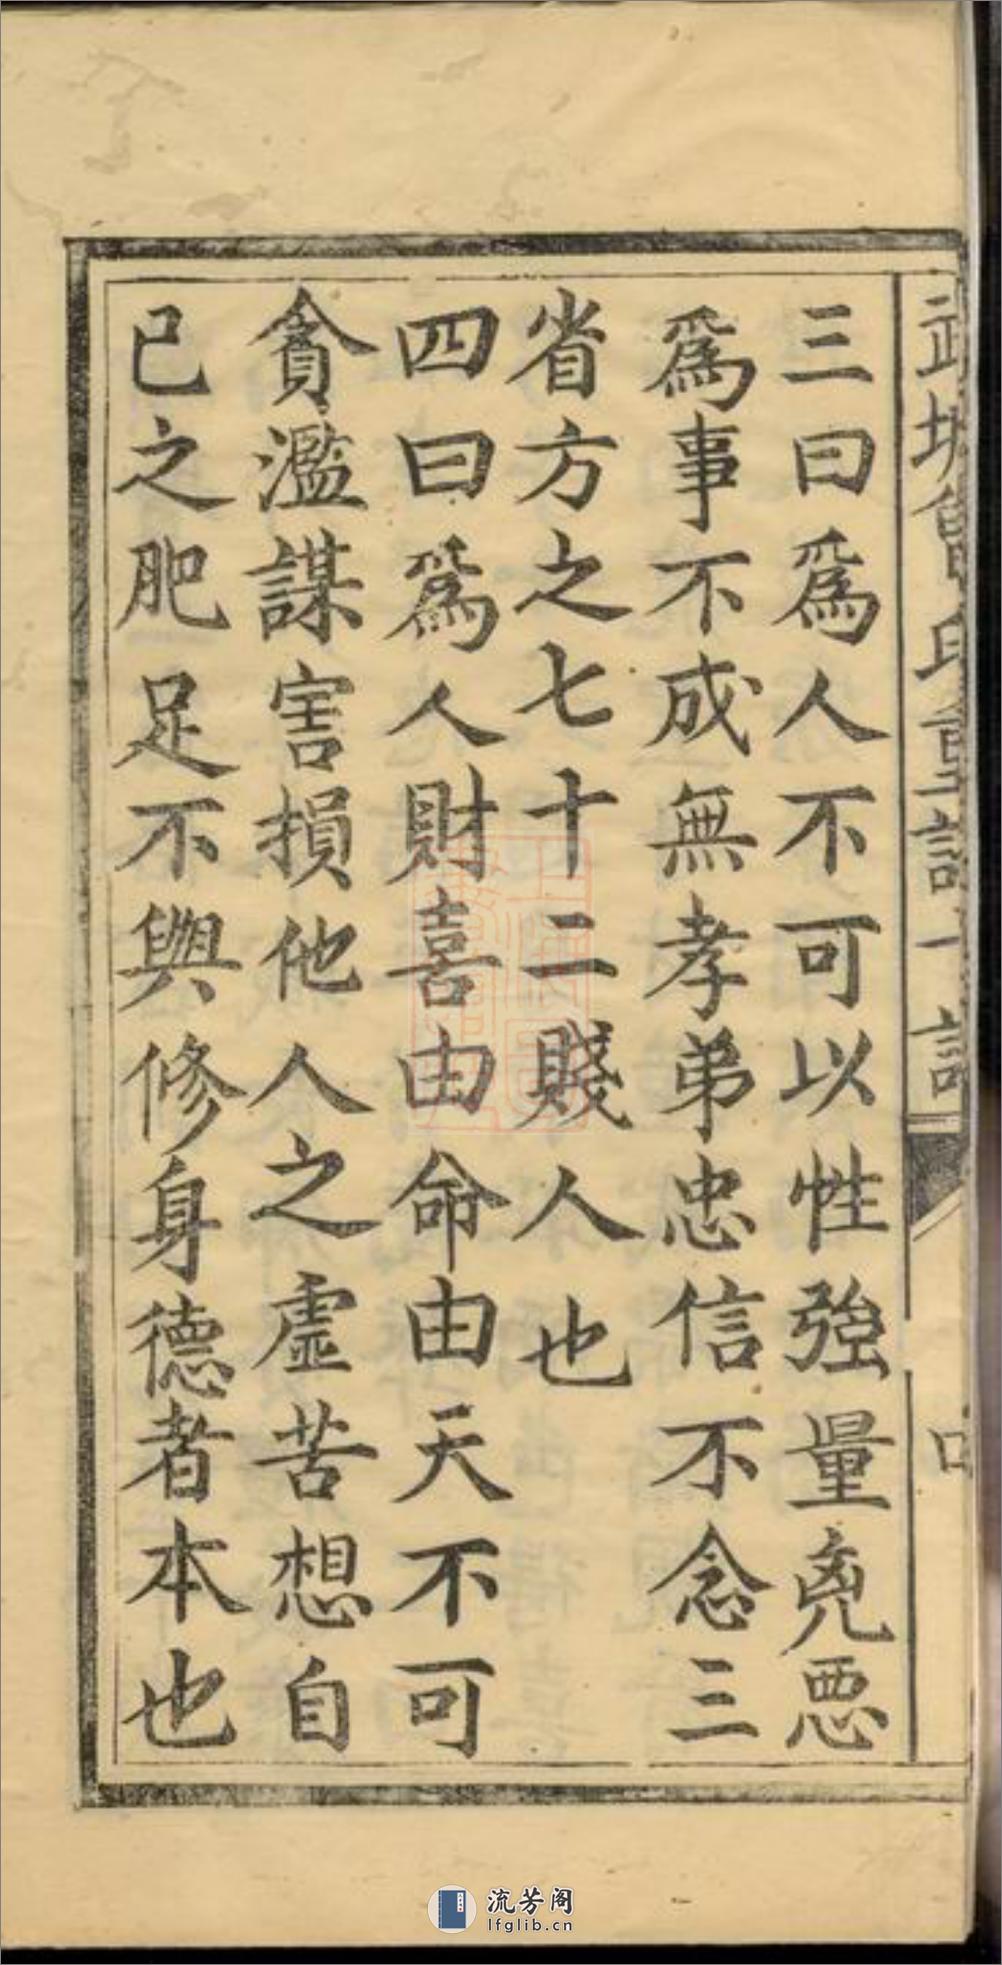 武城曾氏重譜
三曰爲人不可以性強量兇惡
爲事不成無孝弟忠信不念三
省方之七十二賤人也
四曰爲人財喜由命由天不可
貪濫謀害損他人之虛苦想自
已之肥足不與修身德者本也
流芳阁
lfglib.cn